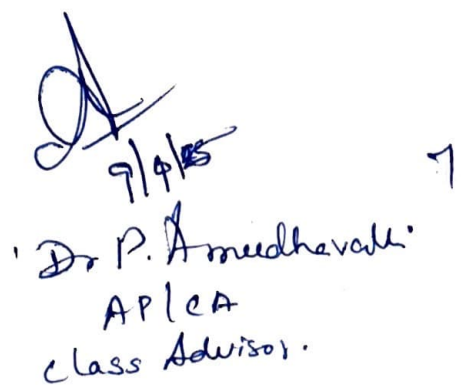 9/4/25
Dr P. Amudhavalli
AP/CA
Class Advisor.